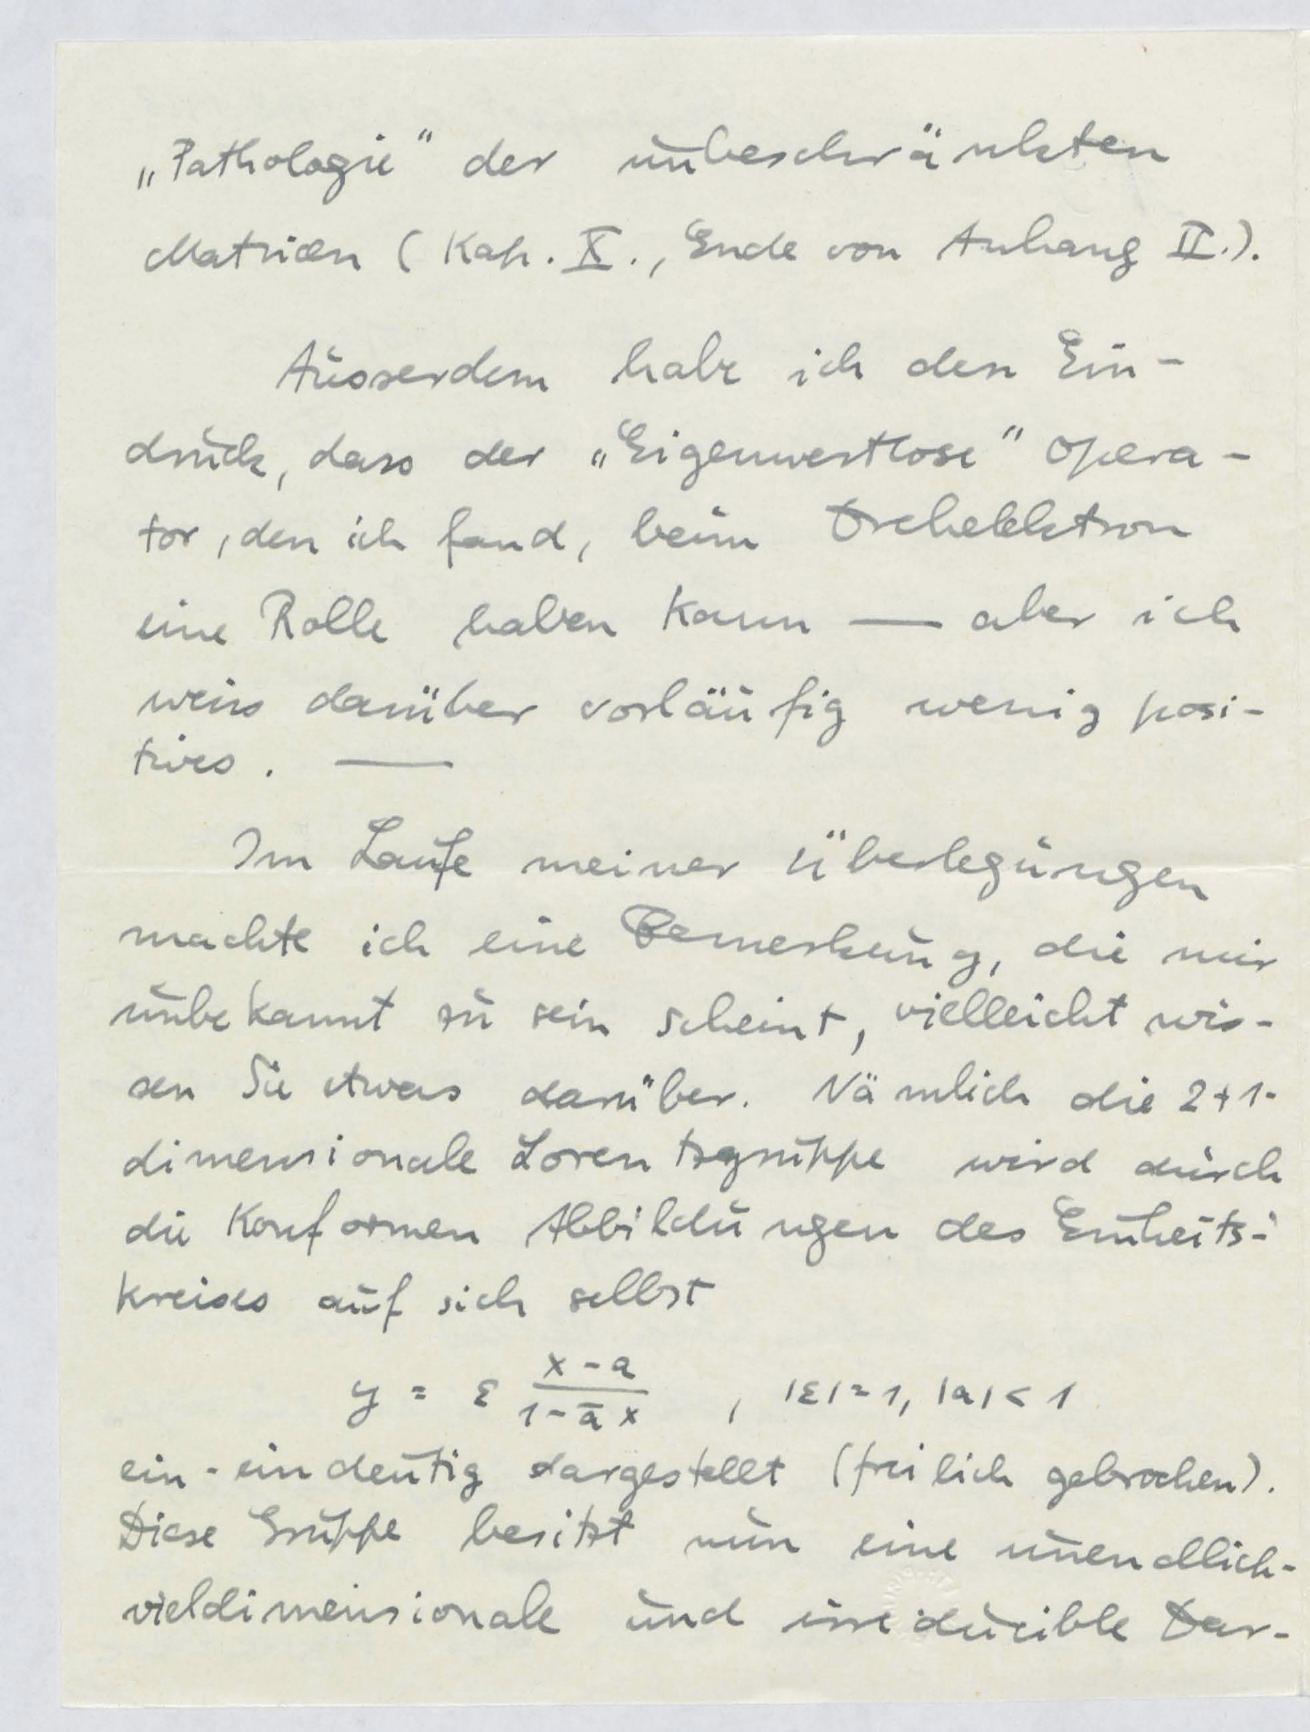 „Pathologie“ der unbeschränkten
Matrizen (Kap. X., Ende von Anhang II.).
Ausserdem habe ich den Ein-
druck, dass der „Eigenwertlose“ Opera-
tor, den ich fand, beim Drehelektron
eine Rolle haben kann — aber ich
weiss darüber vorläufig wenig posi-
tives. —
Im Laufe meiner Überlegungen
machte ich eine Bemerkung, die mir
unbekannt zu sein scheint, vielleicht wis-
sen Sie etwas darüber. Nämlich die 2+1-
dimensionale Lorentzgruppe wird durch
die Konformen Abbildungen des Einheits-
kreises auf sich selbst
y = ε \frac{x-a}{1-\bar{a}x} , |ε|=1, |a|<1
ein-eindeutig dargestellt (freilich gebrochen).
Diese Gruppe besitzt nun eine unendlich-
vieldimensionale und irreducible Dar-